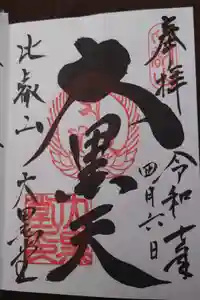 奉拝
令和七年
四月六日
大黒天
比叡山
大黒堂